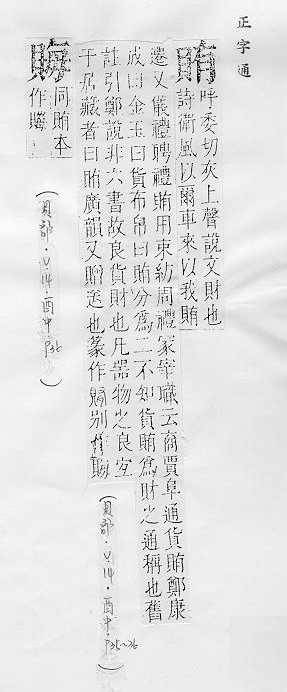 正字通
賄
呼委切灰上聲說文財也
詩衛風以爾車來以我賄
遷又儀禮聘禮賄用束紡周禮冢宰職云商賈阜通貨賄鄭康
成曰金玉曰貨布帛曰賄分爲二不知貨賄爲財之通稱也舊
註引鄭說非六書故良貨財也凡器物之良宜
于居藏者曰賄廣韻又贈送也篆作別
(貝部.V.14.酉中.P35~36)
同賄本
作
(貝部.V.14.酉中 P36)